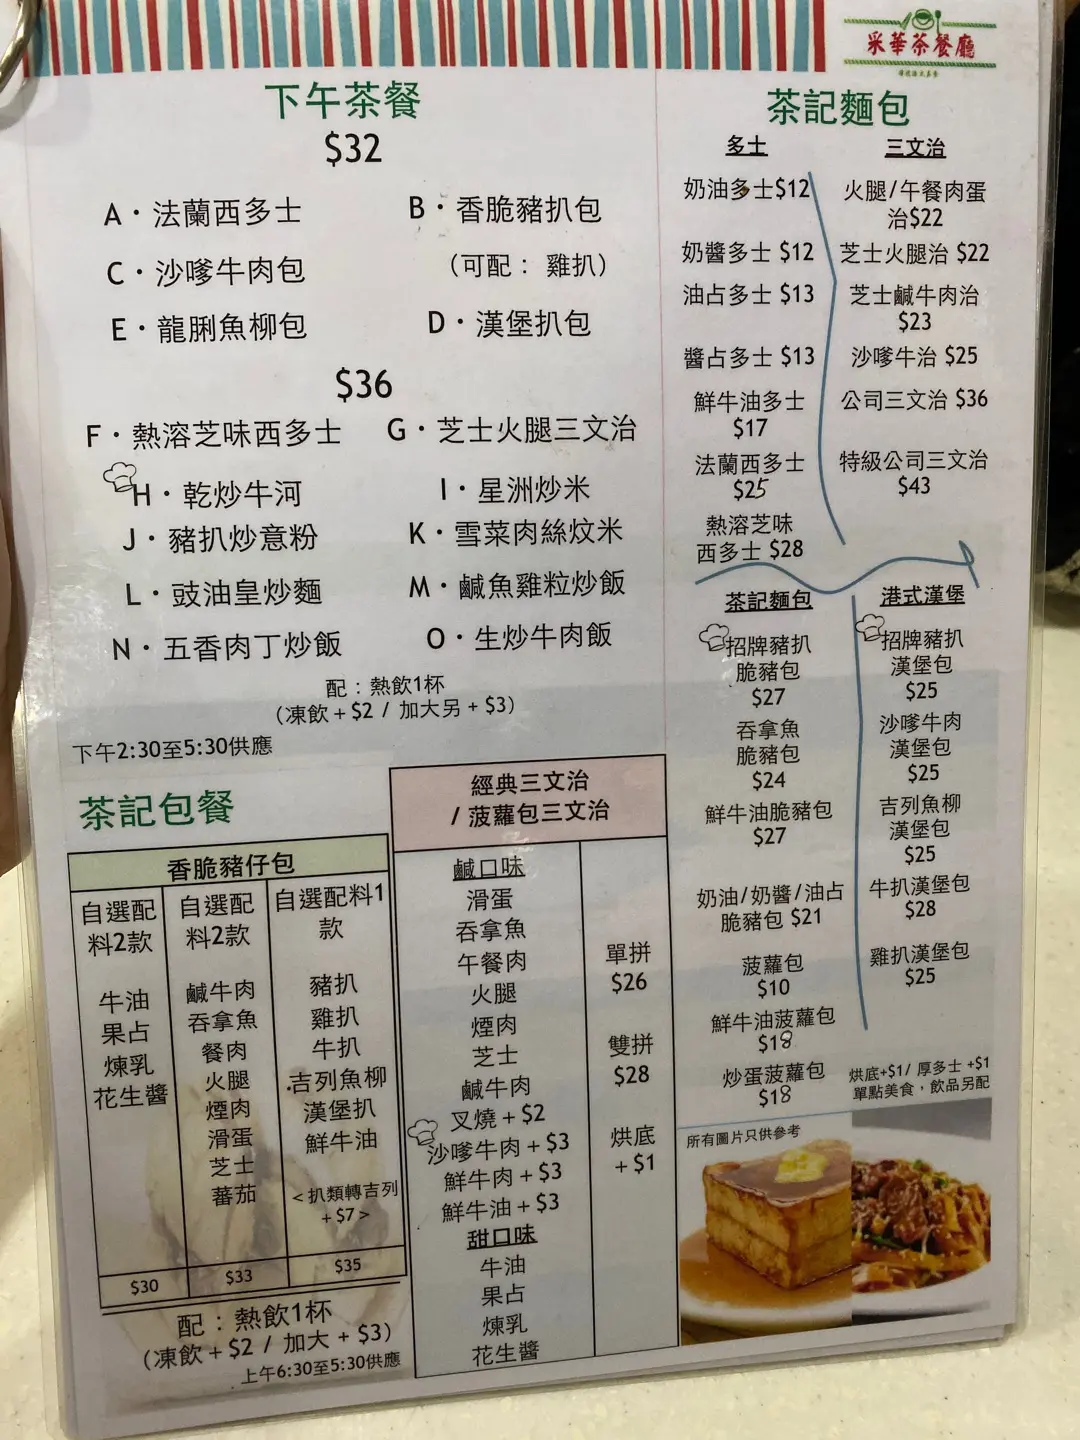 采華茶餐廳
下午茶餐
$32
A・法蘭西多士
B・香脆豬扒包
C・沙嗲牛肉包
（可配： 雞扒）
E・龍脷魚柳包
D・漢堡扒包
$36
F・熱溶芝味西多士
G・芝士火腿三文治
H・乾炒牛河
I・星洲炒米
J・豬扒炒意粉
K・雪菜肉絲炆米
L・豉油皇炒麵
M・鹹魚雞粒炒飯
N・五香肉丁炒飯
O・生炒牛肉飯
配：熱飲1杯
（凍飲+$2 / 加大另+$3）
下午2:30至5:30供應
茶記麵包
多士
奶油多士$12
奶醬多士 $12
油占多士 $13
醬占多士 $13
鮮牛油多士
$17
法蘭西多士
$25
熱溶芝味
西多士 $28
三文治
火腿/午餐肉蛋
治$22
芝士火腿治 $22
芝士鹹牛肉治
$23
沙嗲牛治 $25
公司三文治 $36
特級公司三文治
$43
茶記麵包
招牌豬扒
脆豬包
$27
吞拿魚
脆豬包
$24
鮮牛油脆豬包
$27
奶油/奶醬/油占
脆豬包 $21
菠蘿包
$10
鮮牛油菠蘿包
$18
炒蛋菠蘿包
$18
港式漢堡
招牌豬扒
漢堡包
$25
沙嗲牛肉
漢堡包
$25
吉列魚柳
漢堡包
$25
牛扒漢堡包
$28
雞扒漢堡包
$25
烘底+$1/ 厚多士 +$1
單點美食，飲品另配
所有圖片只供參考
茶記包餐
香脆豬仔包
自選配
料2款
牛油
果占
煉乳
花生醬
$30
自選配
料2款
鹹牛肉
吞拿魚
餐肉
火腿
煙肉
滑蛋
芝士
蕃茄
$33
自選配料1
款
豬扒
雞扒
牛扒
吉列魚柳
漢堡扒
鮮牛油
<扒類轉吉列
+$7>
$35
配：熱飲1杯
（凍飲+$2 / 加大 + $3）
上午6:30至5:30供應
經典三文治
/ 菠蘿包三文治
鹹口味
滑蛋
吞拿魚
午餐肉
火腿
煙肉
芝士
鹹牛肉
叉燒+$2
沙嗲牛肉+$3
鮮牛肉+$3
鮮牛油+$3
甜口味
牛油
果占
煉乳
花生醬
單拼
$26
雙拼
$28
烘底
+$1